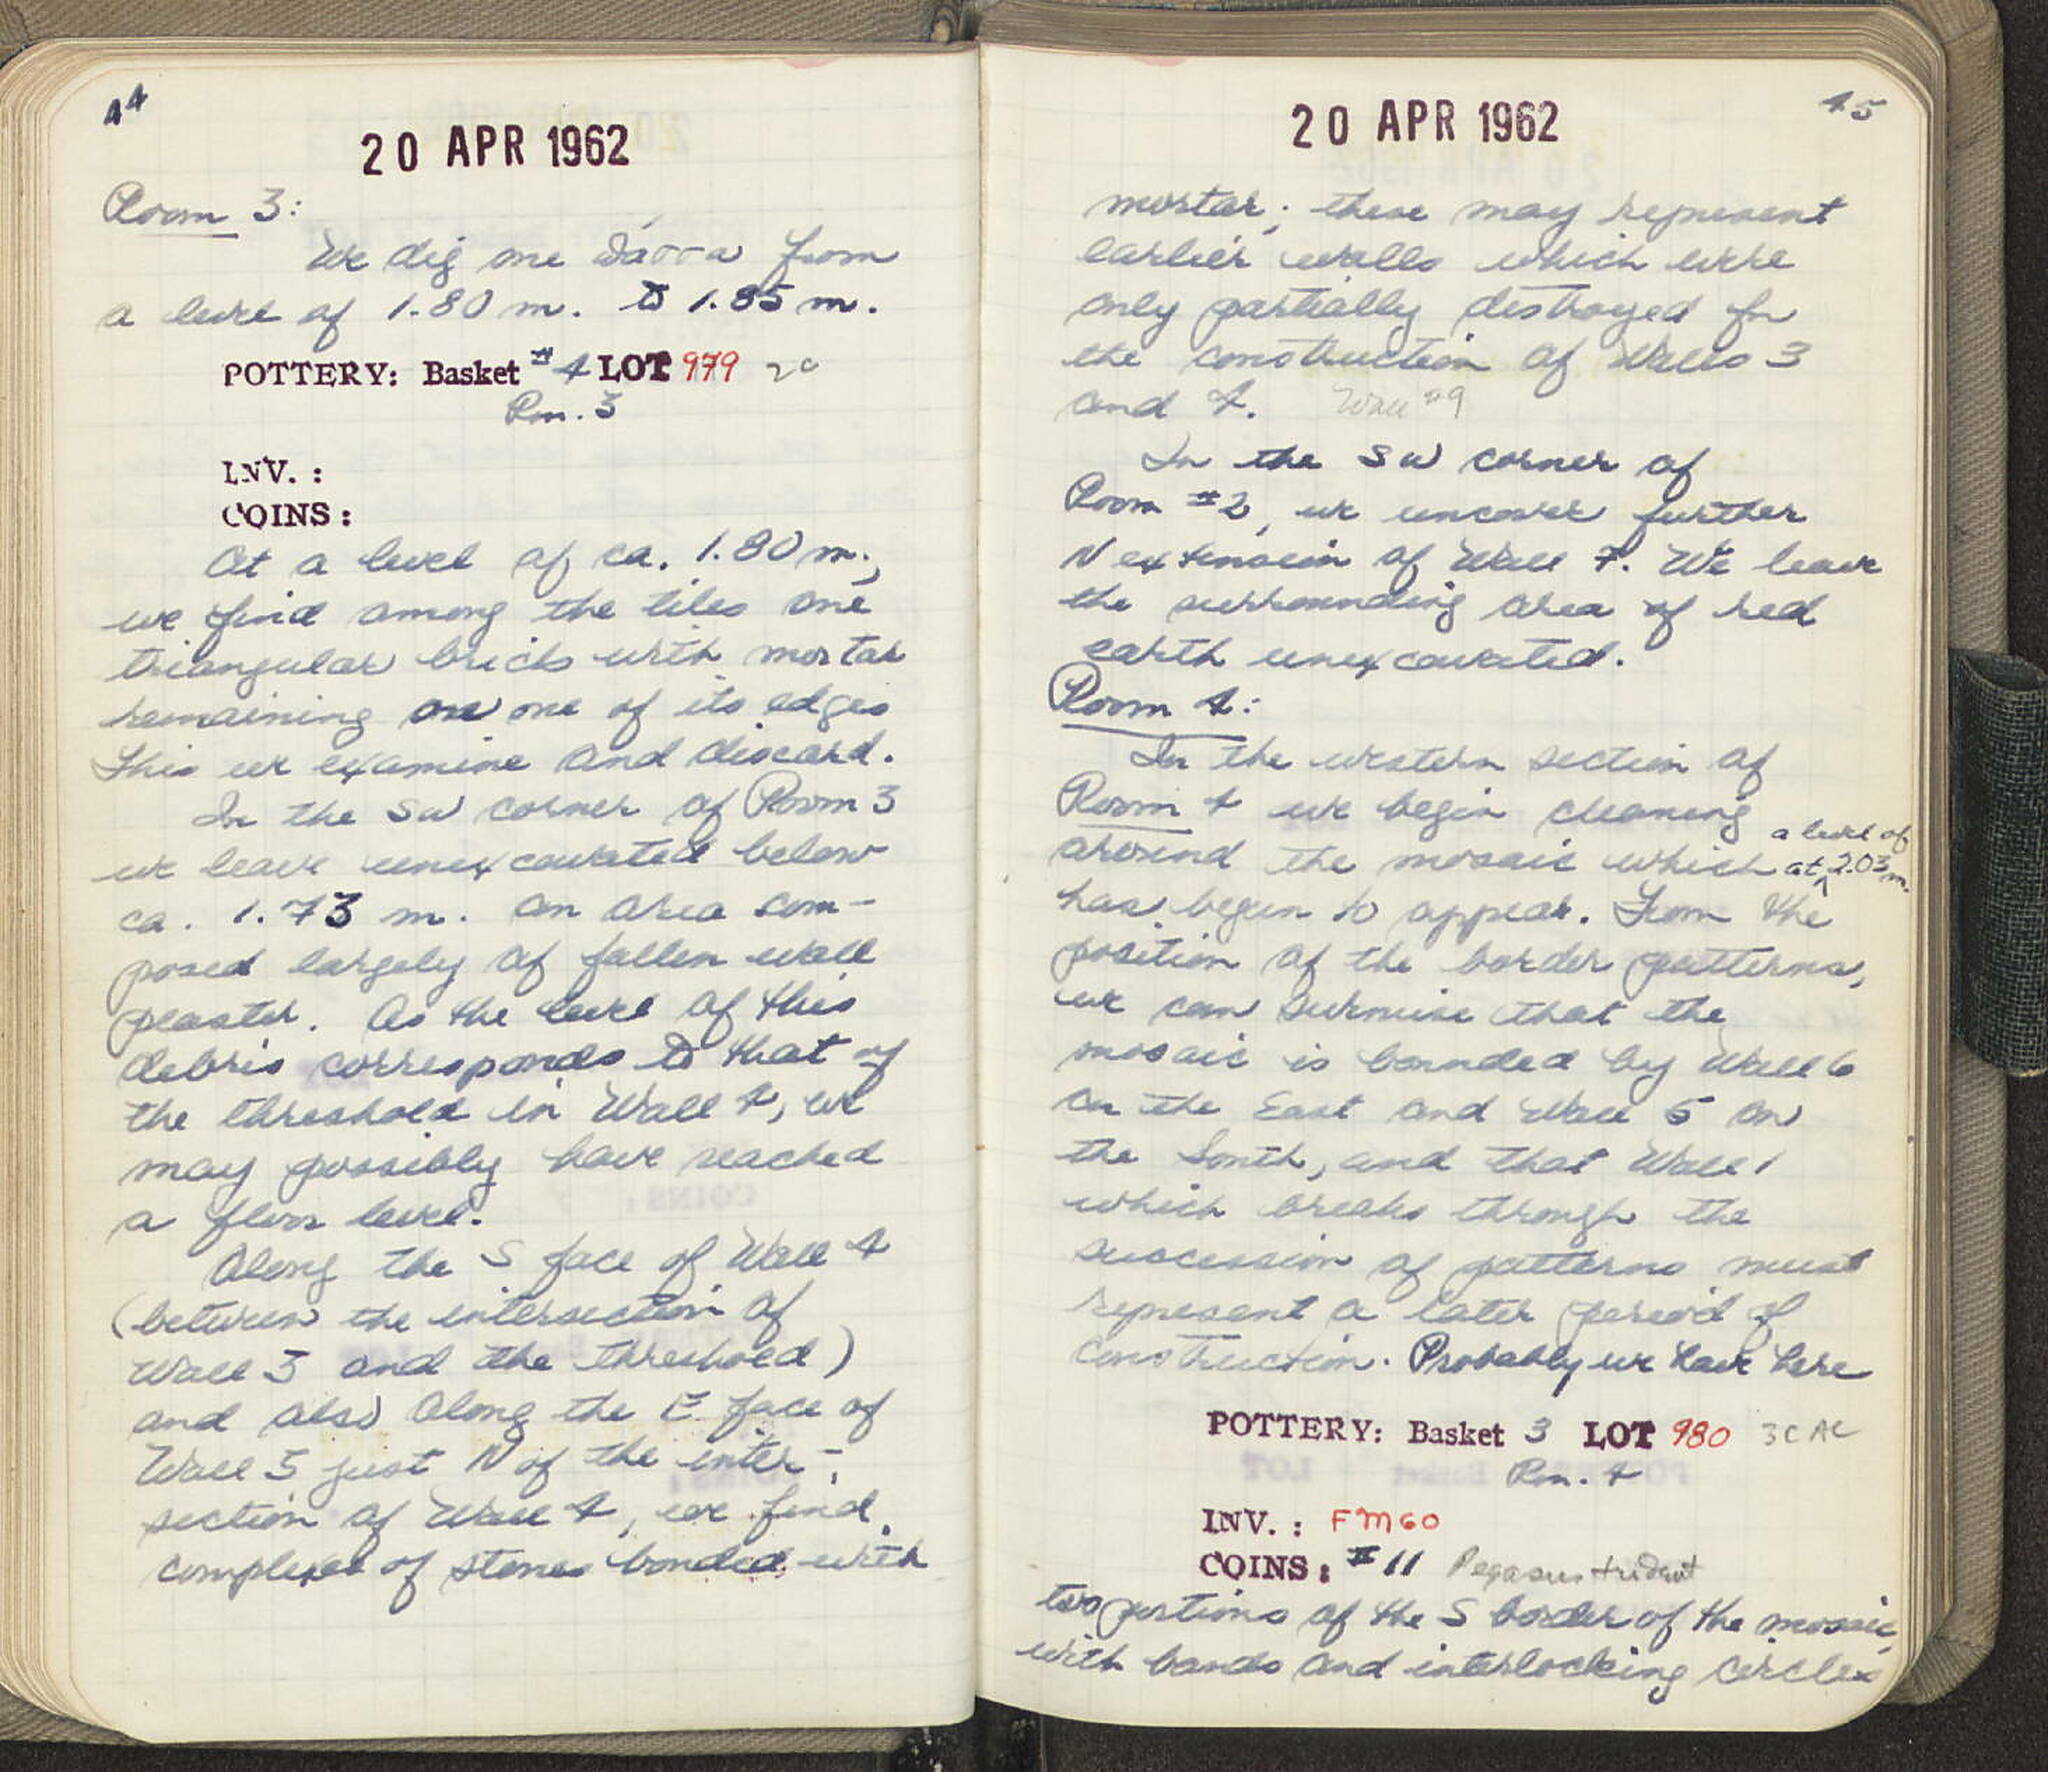 44
20 APR 1962
Room 3:
We dig one πάσσα from
a level of 1.80 m. to 1.85 m.
POTTERY: Basket #4 LOT 979 2c
Rm. 3
INV. :
COINS :
At a level of ca. 1.80 m.,
we find among the tiles one
triangular brick with mortar
remaining on one of its edges
This we examine and discard.
In the SW corner of Room 3
we leave unexcavated below
ca. 1.73 m. an area com-
posed largely of fallen wall
plaster. As the level of this
debris corresponds to that of
the threshold in Wall 4, we
may possibly have reached
a floor level.
Along the S face of Wall 4
(between the intersection of
Wall 3 and the threshold)
and also along the E face of
Wall 3 just N of the inter-
section of Wall 4, we find
complexes of stones bonded with
45
20 APR 1962
mortar; these may represent
earlier walls which were
only partially destroyed for
the construction of Walls 3
and 4. Wall #9
In the SW corner of
Room #2, we uncover further
N extension of Wall 7. We leave
the surrounding area of red
earth unexcavated.
Room 4:
In the western section of
Room 4 we begin cleaning
around the mosaic which at a level of 2.03 m.
has begun to appear. From the
position of the border patterns,
we can surmise that the
mosaic is bounded by Wall 6
on the East and Wall 5 on
the South, and that Wall 1
which breaks through the
succession of patterns must
represent a later period of
construction. Probably we have here
POTTERY: Basket 3 LOT 980 3C AC
Rm. 4
INV. : FM60
COINS : #11 Pegasus trident
two portions of the S border of the mosaic,
with bands and interlocking circles